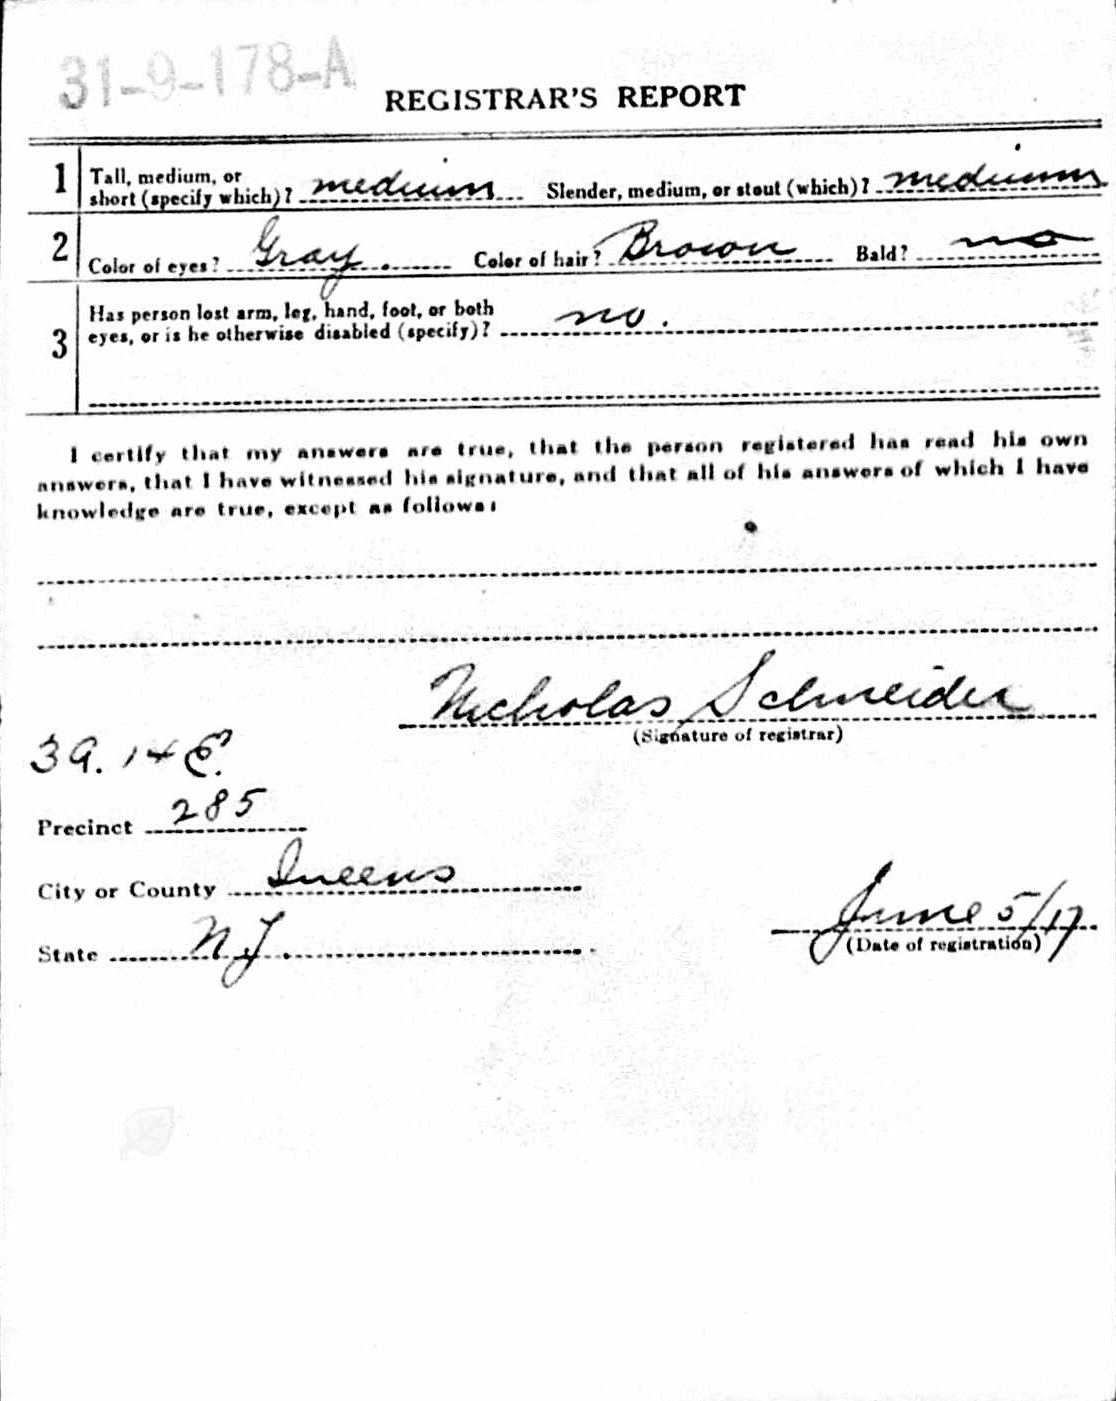 31-9-178-A
REGISTRAR'S REPORT
1 Tall, medium, or
short (specify which)? medium Slender, medium, or stout (which)? medium
2 Color of eyes? Gray Color of hair? Brown Bald? no
3 Has person lost arm, leg, hand, foot, or both
eyes, or is he otherwise disabled (specify)? no.
I certify that my answers are true, that the person registered has read his own
answers, that I have witnessed his signature, and that all of his answers of which I have
knowledge are true, except as follows:
Nicholas Schneider
(Signature of registrar)
Precinct 285
City or County Queens
State N.Y.
June 5/17
(Date of registration)